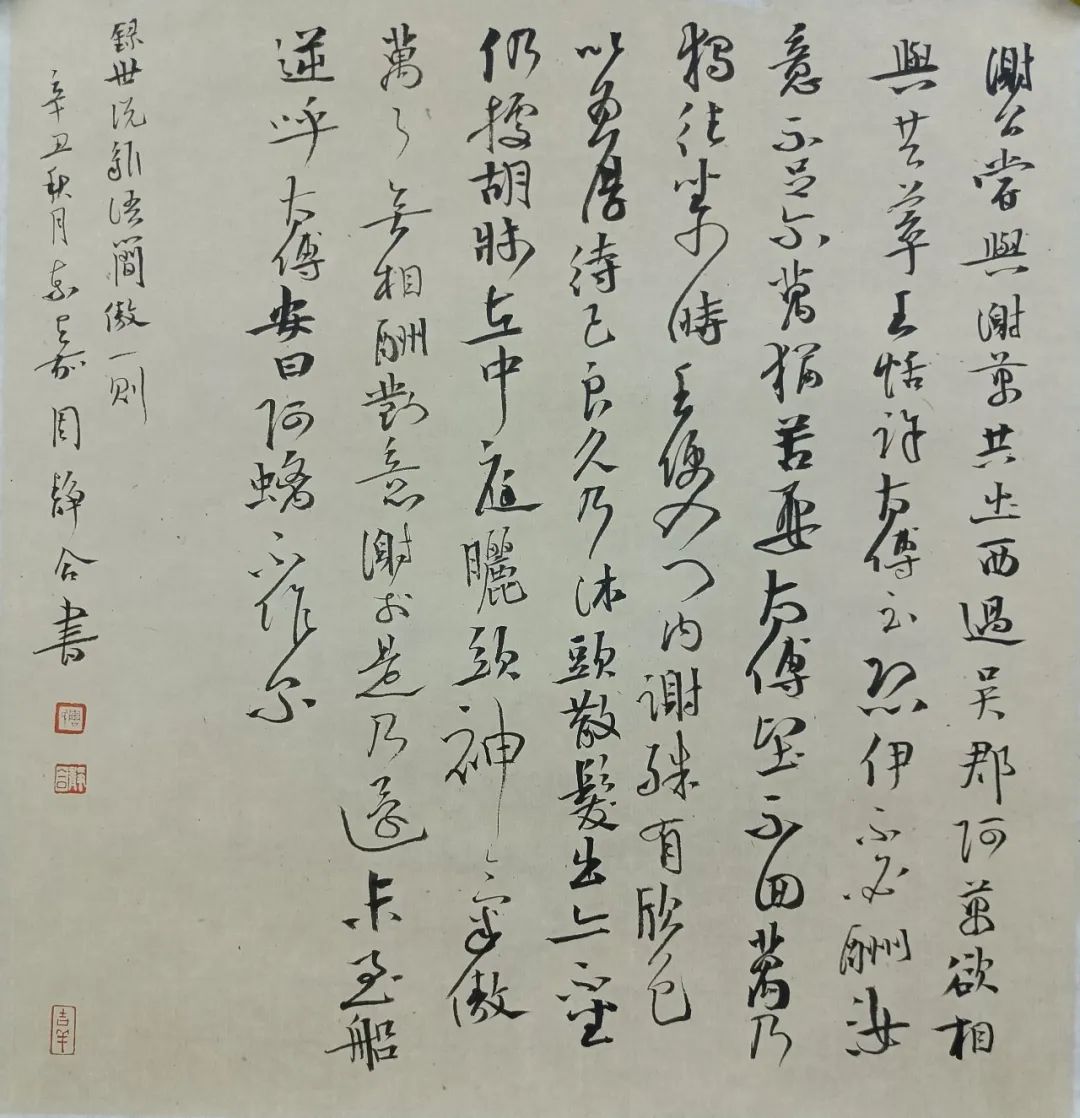 謝公嘗與謝萬共出西過吳郡阿萬欲相
與共萃王恬許太傅云恐伊不必酬汝
意不足尔萬猶苦要太傅堅不回萬乃
獨往坐少時王便入門內謝殊有欣色
以為厚待己良久乃沐頭散髮出亦不坐
仍據胡牀在中庭曬頭神氣傲
萬了無相酬對意謝於是乃還未至船
逆呼太傅安曰阿螭不作尔
錄世說新語簡傲一則
辛丑秋月周靜合書
吉羊